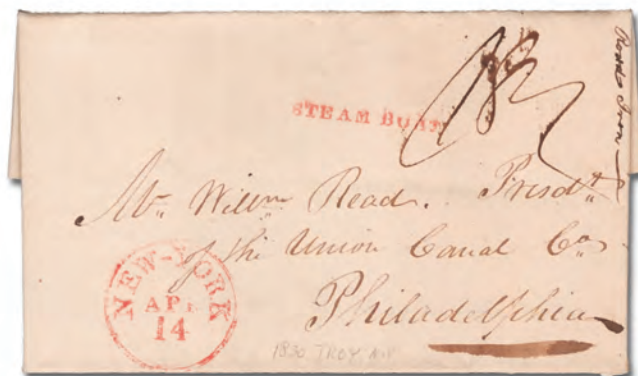 STEAM BOAT
Mr. Willm Read. Presdt
of the Union Canal Co
Philadelphia
NEW-YORK
14
1830 TROY, N.Y.